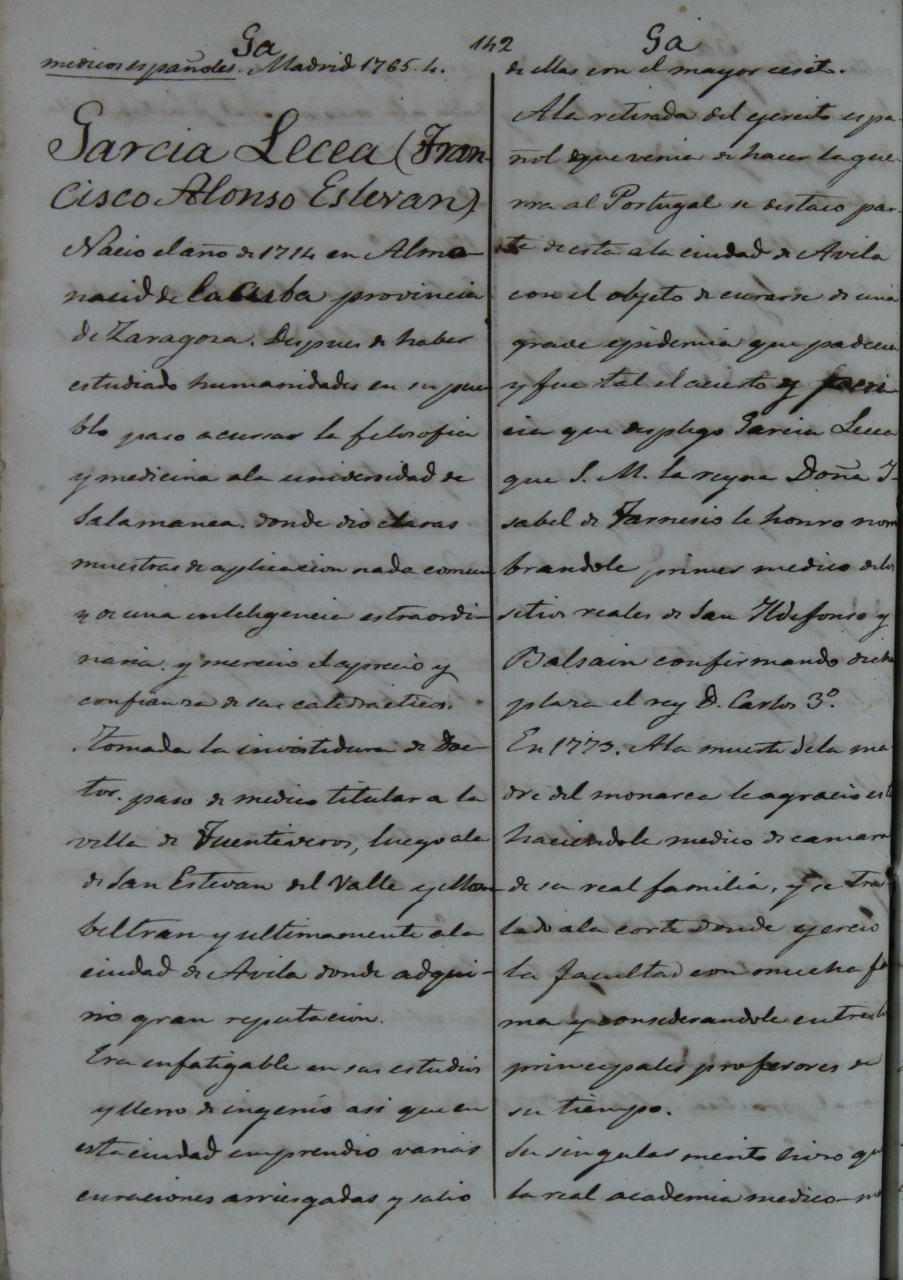 Ga
142
Ga
medicos españoles. Madrid 1765. 4.
Garcia Lecea (Fran-
cisco Alonso Estevan).
Nacio el año de 1714 en Almo-
nacid de la Cuba provincia
de Zaragoza. Despues de haber
estudiado humanidades en su pue
blo paso a cursar la filosofia
y medicina ala universidad de
Salamanca. donde dio claras
muestras de aplicacion nada comun
y de una inteligencia estraordi-
naria. y merecio el aprecio y
confianza de sus catedraticos.
Tomada la investidura de Doc-
tor. paso de medico titular a la
villa de Fuentiveros, luego ala
de San Estevan del Valle y Mon
beltran y ultimamente a la
ciudad de Avila donde adqui-
rio gran reputacion.
Era infatigable en sus estudios
y lleno de ingenio asi que en
esta ciudad emprendio varias
curaciones arriesgadas y salio
de ellas con el mayor ecsito.
A la retirada del ejercito espa-
ñol que venia de hacer la gue
rra al Portugal se destaco par-
te de esta a la ciudad de Avila
con el objeto de curarse de una
grave epidemia que padecia
y fue tal el acierto y peri
cia que desplego Garcia Lecea
que S. M. la reyna Doña I-
sabel de Farnesio le honro nom
brandole primer medico de los
sitios reales de San Ildefonso y
Balsain confirmando dicha
plaza el rey D. Carlos 3º
En 1773. A la muerte de la ma
dre del monarca le agracio este
haciendole medico de camara
de su real familia, y se tras
lado a la corte donde ejercio
la facultad con mucha fa
ma y considerandole entre los
principales profesores de
su tiempo.
Su singular merito hizo que
la real academia medico-